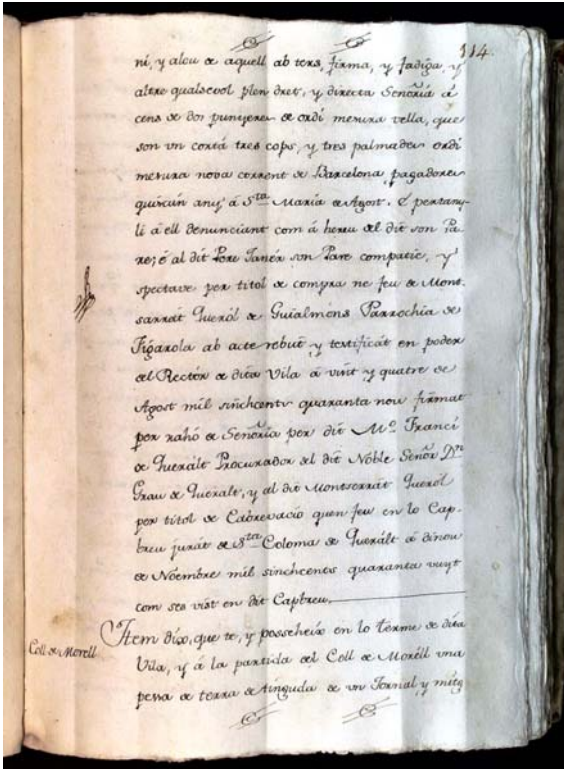 114.
ni, y alou de aquell ab ters, firma, y fadiga, y
altre qualsevol plen dret, y directa Señoría á
cens de dos punyeres de ordi mesura vella, que
son vn cortá tres cops, y tres palmades ordi
mesura nova corrent de Barcelona pagadores
quiscun any á Sta Maria de Agost. É pertany-
li á ell denunciant com á hereu del dit son Pa-
re; é al dit Pere Janér son Pare compatie, y
spectave per titol de compra ne feu de Mont-
sarrát Queról de Guialmóns Parrochia de
Figarola ab acte rebut y testificát en poder
del Rectór de dita Vila á vint y quatre de
Agost mil sinchcents quaranta nou firmat
per rahó de Señoría per dit Mo. Franci
de Queralt Procurador del dit Noble Señor Dn
Grau de Queralt, y al dit Montserrat Queról
per titol de Cabrevació quen feu en lo Cap-
breu jurát de Sta Coloma de Querált á dinou
de Noembre mil sinchcents quaranta vuyt
com ses vist en dit Capbreu.
Coll de Morell
Item dix, que te, y posseheix en lo terme de dita
Vila, y á la partida del Coll de Moréll vna
pessa de terra de tinguda de vn Jornal y mitg